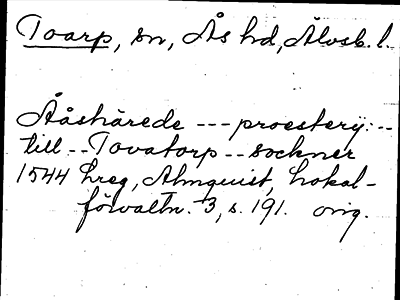 Toarp, sn, Ås hd, Älvsb. l.
Ååshärede --- proestery: --
till -- Tovatorp -- sockner
1544 hreg, Almquist, Lokal-
förvaltn. 3, s. 191. orig.